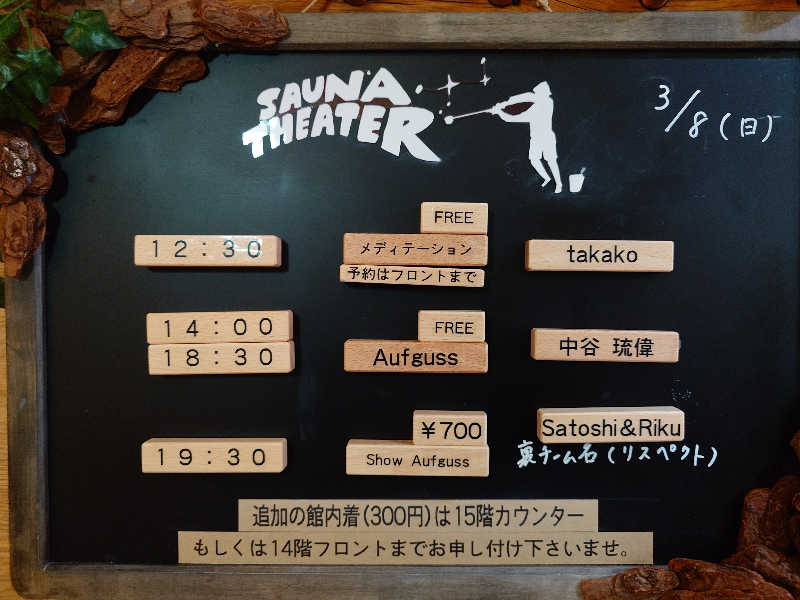 SAUNA
THEATER
3/8(日)
FREE
12:30 メディテーション takako
予約はフロントまで
14:00 FREE
18:30 Aufguss 中谷 琉偉
¥700 Satoshi&Riku
19:30 Show Aufguss 裏チーム名(リスペクト)
追加の館内着(300円)は15階カウンター
もしくは14階フロントまでお申し付け下さいませ。